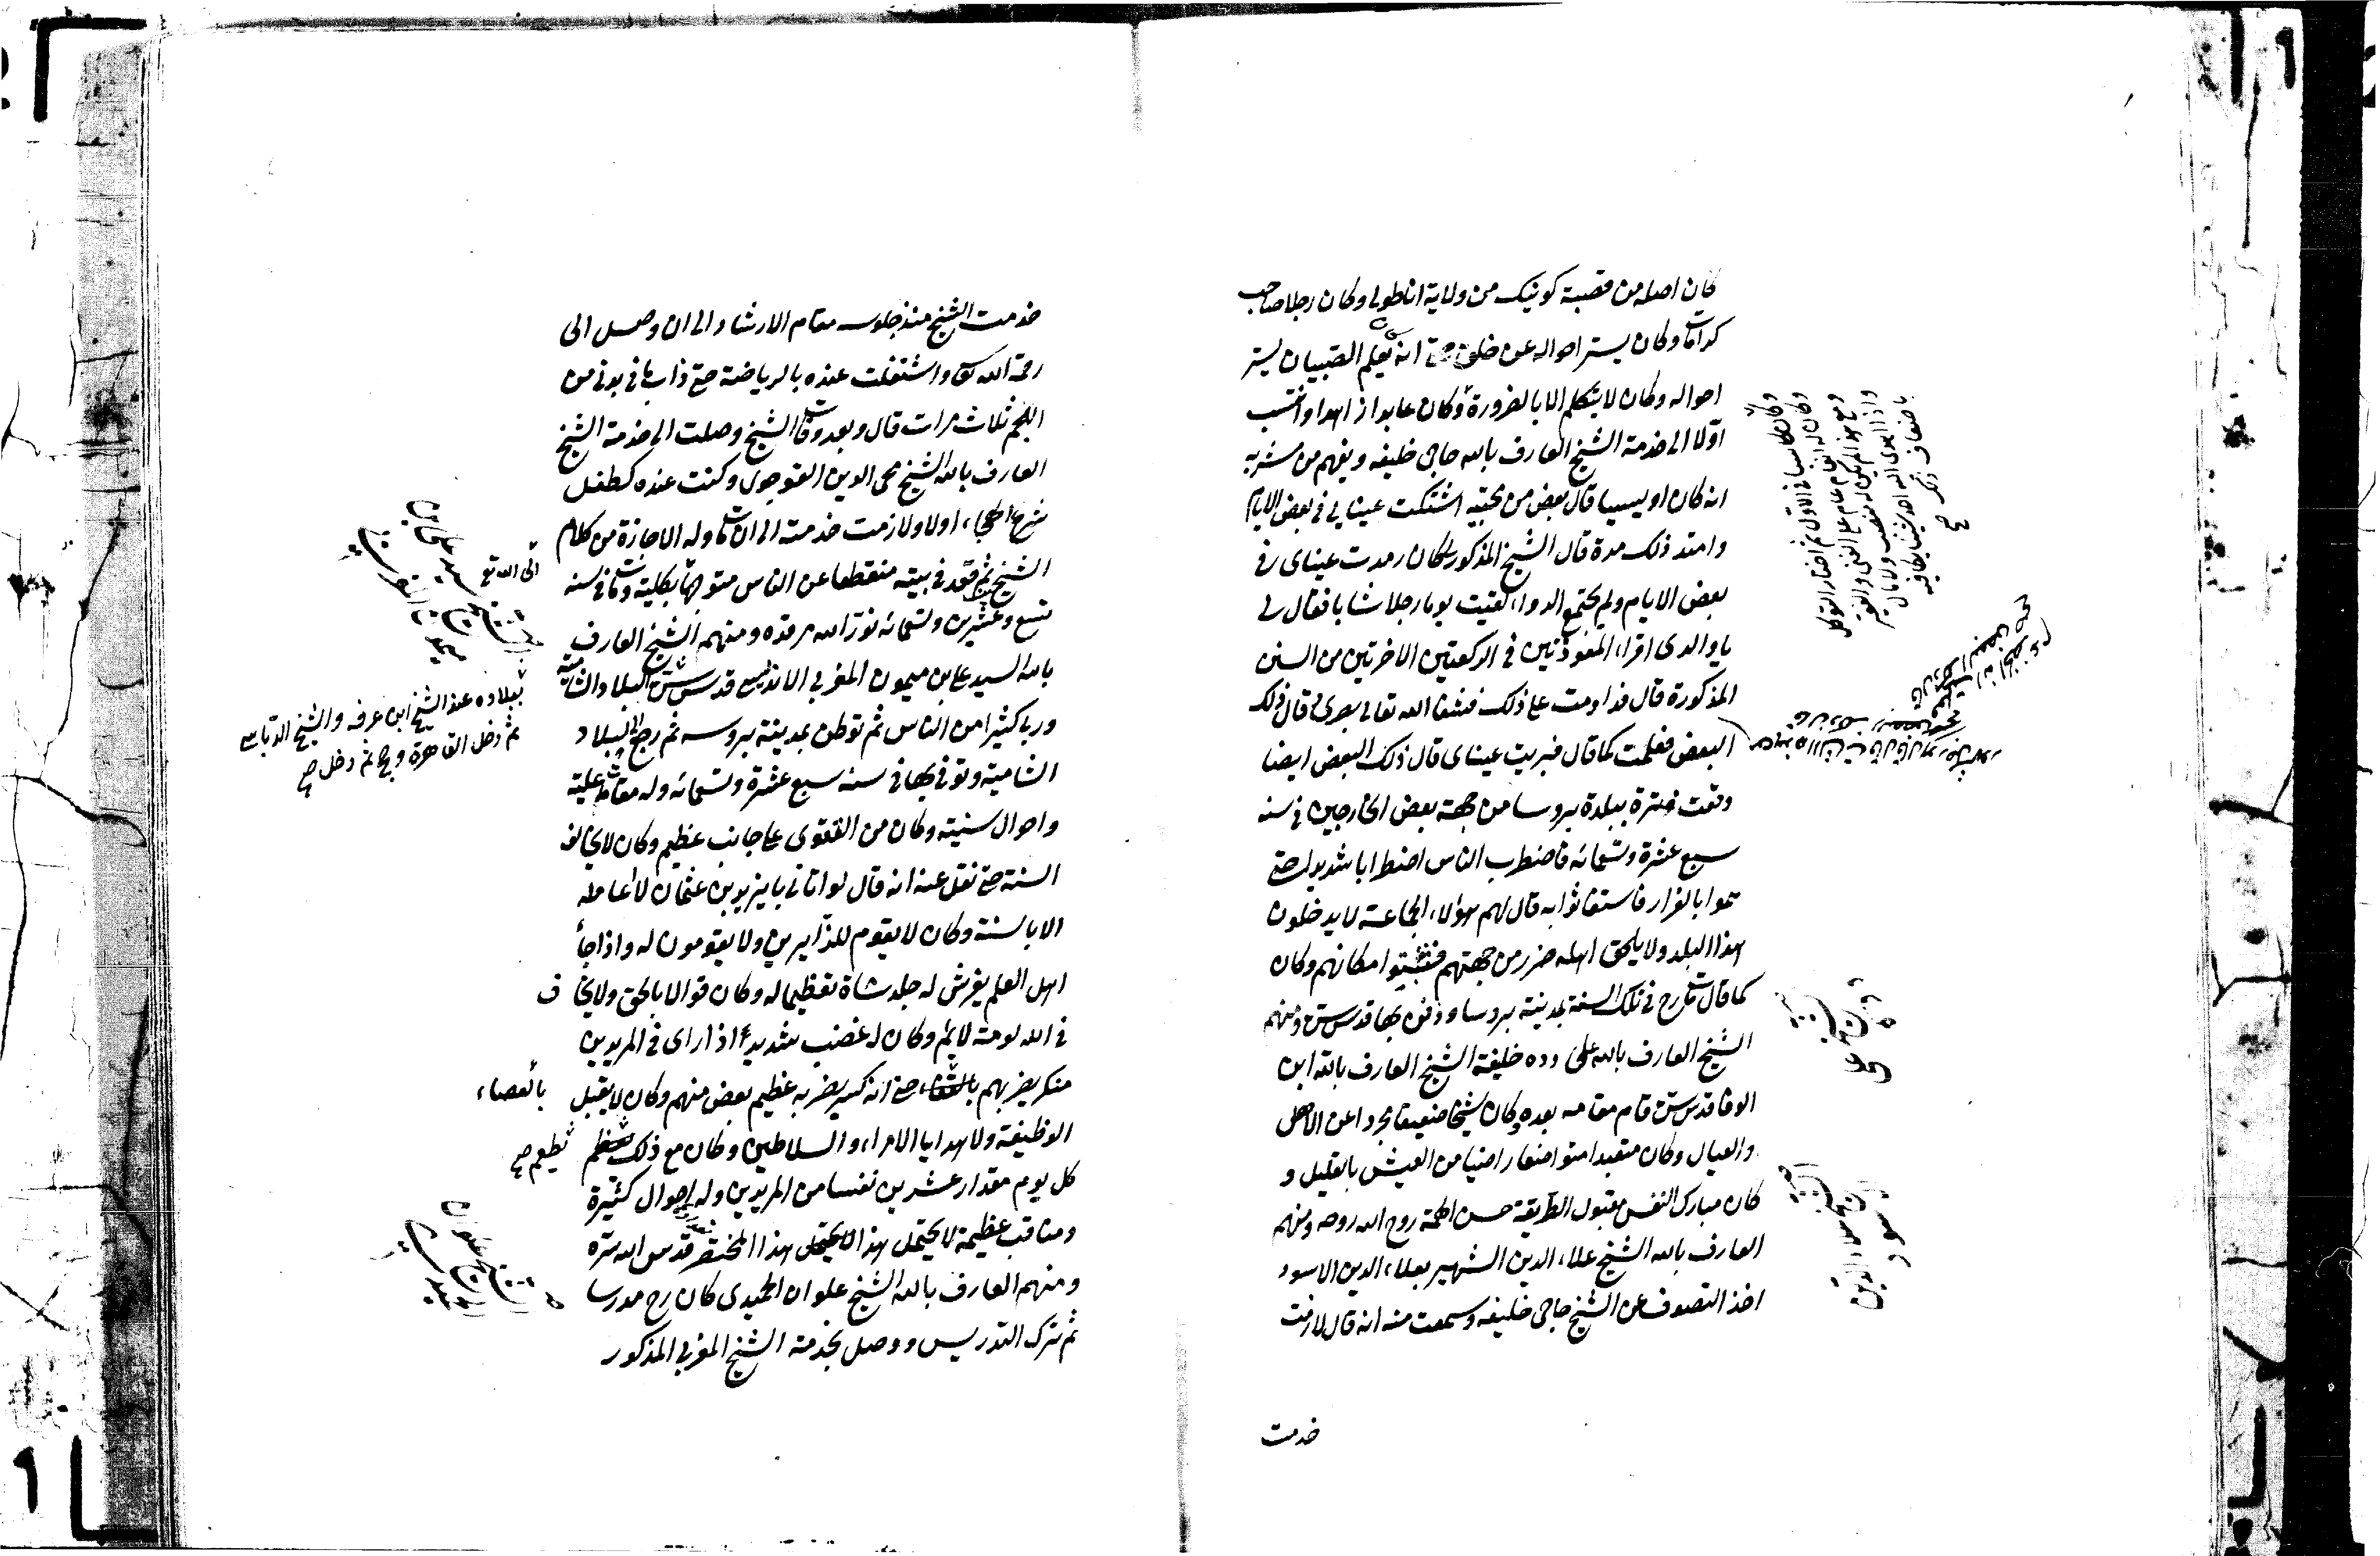 كان اصله من قصبة كونيك من ولاية اناطولى وكان رجلا صاحب
كرامات وكان يستر احواله عن خلق حتى انه كان يعلم الصبيان ليستر
احواله وكان لا يتكلم الا بالضرورة وكان عابدا زاهدا وانتسب
اولا الى خدمة الشيخ العارف بالله حاجى خليفه ويفهم من مشربه
انه كان اويسيا قال بعض من محبيه اشتكت عيناى فى بعض الايام
وامتد ذلك مدة قال الشيخ المذكور كان رمدت عيناى فى
بعض الايام ولم ينجع الدواء لقيت يوما رجلا شابا فقال لى
يا والدى اقراء المعوذتين فى الركعتين الاخرتين من السنن
المذكورة قال فداومت على ذلك فشفا الله تعالى بصرى قال ذلك
البعض ففعلت كما قال فبريت عيناى قال ذلك البعض ايضا
وقعت فترة ببلدة بروسا من جهة بعض الخارجين فى سنه
سبع عشرة وتسعمائه فاضطرب الناس اضطرابا شديدا حتى
هموا بالفرار فاستغاثوا به قال لهم هؤلاء الجماعة لا يدخلون
هذا البلد ولا يلحق اهله ضرر من جهتهم فثبتوا مكانهم وكان
كما قال مات رح فى تلك السنة بمدينة بروسا ودفن بها قدس سره ومنهم
الشيخ العارف بالله على دده خليفة الشيخ العارف بالله ابن
الوفا قدس سره قام مقامه بعده وكان شيخا ضعيفا مجردا عن الاهل
والعيال وكان متعبدا متواضعا راضيا من العيش بالقليل و
كان مبارك النفس مقبول الطريقة حسن السمة روح الله روحه ومنهم
العارف بالله الشيخ علاء الدين الشهير بعلاء الدين الاسود
اخذ التصوف عن الشيخ حاجى خليفه وسمعت منه انه قال لازمت
خدمت
وكان له انعام عام على الغنى والفقير
ومع هذا لم يكن له منصب ولا مال
واذا اهدى اليه احد شيئا يكافيه
باضعاف ذلك صح
الشيخ على
الشيخ علاء الدين
الاسود
خدمت الشيخ منذ جلوسه مقام الارشاد الى ان وصل الى
رحمة الله تعالى واشتغلت عنده بالرياضة حتى ذاب ما فى بدنى من
اللحم ثلاث مرات قال وبعد وفات الشيخ وصلت الى خدمة الشيخ
العارف بالله الشيخ محى الدين القوجوى وكنت عنده كطفل
شرع الهجاء اولا ولازمت خدمته الى ان مات وله الاجازة من كلام
الشيخ ثم قعد فى بيته منقطعا عن الناس متوجها بكليته ومات فى سنه
تسع وعشرين وتسعمائه نور الله مرقده ومنهم الشيخ العارف
بالله السيد على بن ميمون المغربى الاندلسى قدس سره البلاد الشامية
وربى كثيرا من الناس ثم توطن بمدينة بروسه ثم رجع الى البلاد
الشامية وتوفى بها فى سنه سبع عشرة وتسعمائه وله مقامات علية
واحوال سنية وكان من التقوى على جانب عظيم وكان لا يخالف
السنة حتى نقل عنه انه قال لو اتانى بايزيد بن عثمان لا اعامله
الا بالسنة وكان لا يقوم للزايرين ولا يقومون له واذا جأ
اهل العلم يفرش له جلد شاة تعظيما له وكان قوالا بالحق ولا يخاف
فى الله لومة لايم وكان له غضب شديد اذا راى فى المريدين
منكر يضربهم بالعصاء حتى انه كسر بضربه عظيم بعض منهم وكان لا يقبل
الوظيفة ولا هدايا الامراء والسلاطين وكان مع ذلك يطعم
كل يوم مقدار عشرين نفسا من المريدين وله احوال كثيرة
ومناقب عظيمة لا يحتمل هذا المختصر قدس الله سره
ومنهم العارف بالله الشيخ علوان الحميدى كان رح مدرسا
ثم ترك التدريس ووصل بخدمة الشيخ المغربى المذكور
الى الله تع
الشيخ سيد على بن
ميمون المغربى
ببلاده عند الشيخ ابن عرفه والشيخ الدباسى
ثم دخل القاهرة وحج ثم دخل صح
بالعصاء
يطعم صح
الشيخ علوان